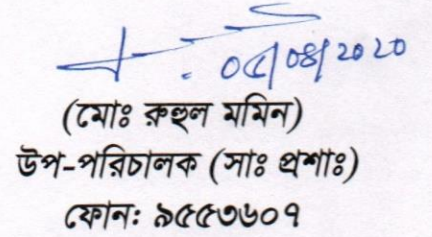 ০৫/০৪/২০২০
(মোঃ রুহুল মমিন)
উপ-পরিচালক (সাঃ প্রশাঃ)
ফোনঃ ৯৫৫৩৬০৭